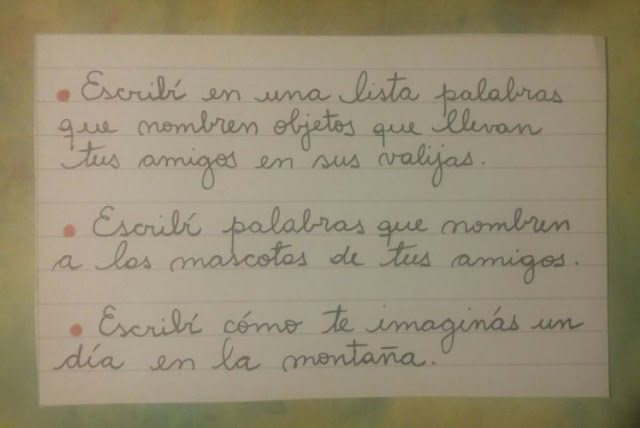 • Escribí en una lista palabras
que nombren objetos que llevan
tus amigos en sus valijas.
• Escribí palabras que nombren
a las mascotas de tus amigos.
• Escribí cómo te imaginás un
día en la montaña.